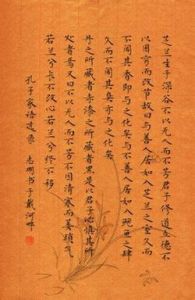 芝兰生于深谷不以无人而不芳君子修道立德不
以困穷而改节故曰与善人居如入芝兰之室久而
不闻其香即与之化矣与不善人居如入鲍鱼之肆
久而不闻其臭亦与之化矣
丹之所藏者赤漆之所藏者黑是以君子必慎其所
处者焉又曰不以无人而不芳不因清寒而萎
若兰兮长不改心若兰兮终不移
孔子家语选录 志明书于戴河畔